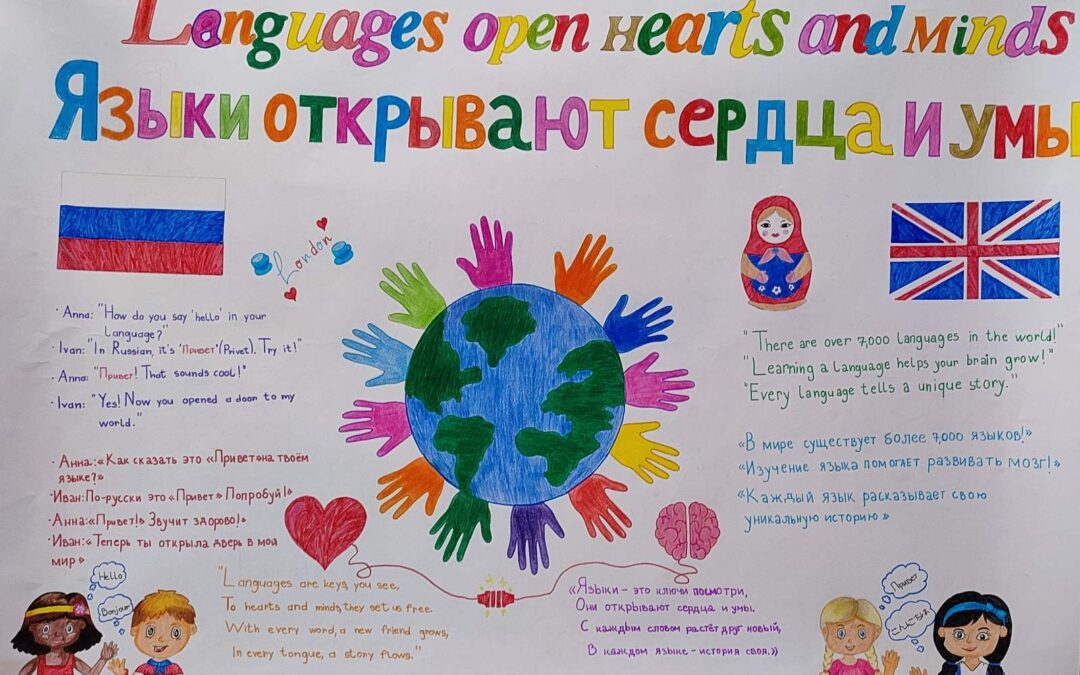 Languages open hearts and minds
Языки открывают сердца и умы
London
· Anna: "How do you say 'hello' in your
language?"
· Ivan: "In Russian, it's 'Привет' (Privet). Try it!"
· Anna: "Привет! That sounds cool!"
· Ivan: "Yes! Now you opened a door to my
world."
· Анна: «Как сказать это «Привет» на твоём
языке?»
· Иван: По-русски это «Привет» Попробуй!»
· Анна: «Привет!» Звучит здорово!»
· Иван: «Теперь ты открыла дверь в мой
мир»
"There are over 7,000 languages in the world!"
"Learning a language helps your brain grow!"
"Every language tells a unique story."
«В мире существует более 7,000 языков!»
«Изучение языка помогает развивать мозг!»
«Каждый язык рассказывает свою
уникальную историю»
"Languages are keys, you see,
To hearts and minds, they set us free.
With every word, a new friend grows,
In every tongue, a story flows."
«Языки – это ключи посмотри,
Они открывают сердца и умы,
С каждым словом растёт друг новый,
В каждом языке – история своя.»
Hello
Bonjour
Привет
こんにちは